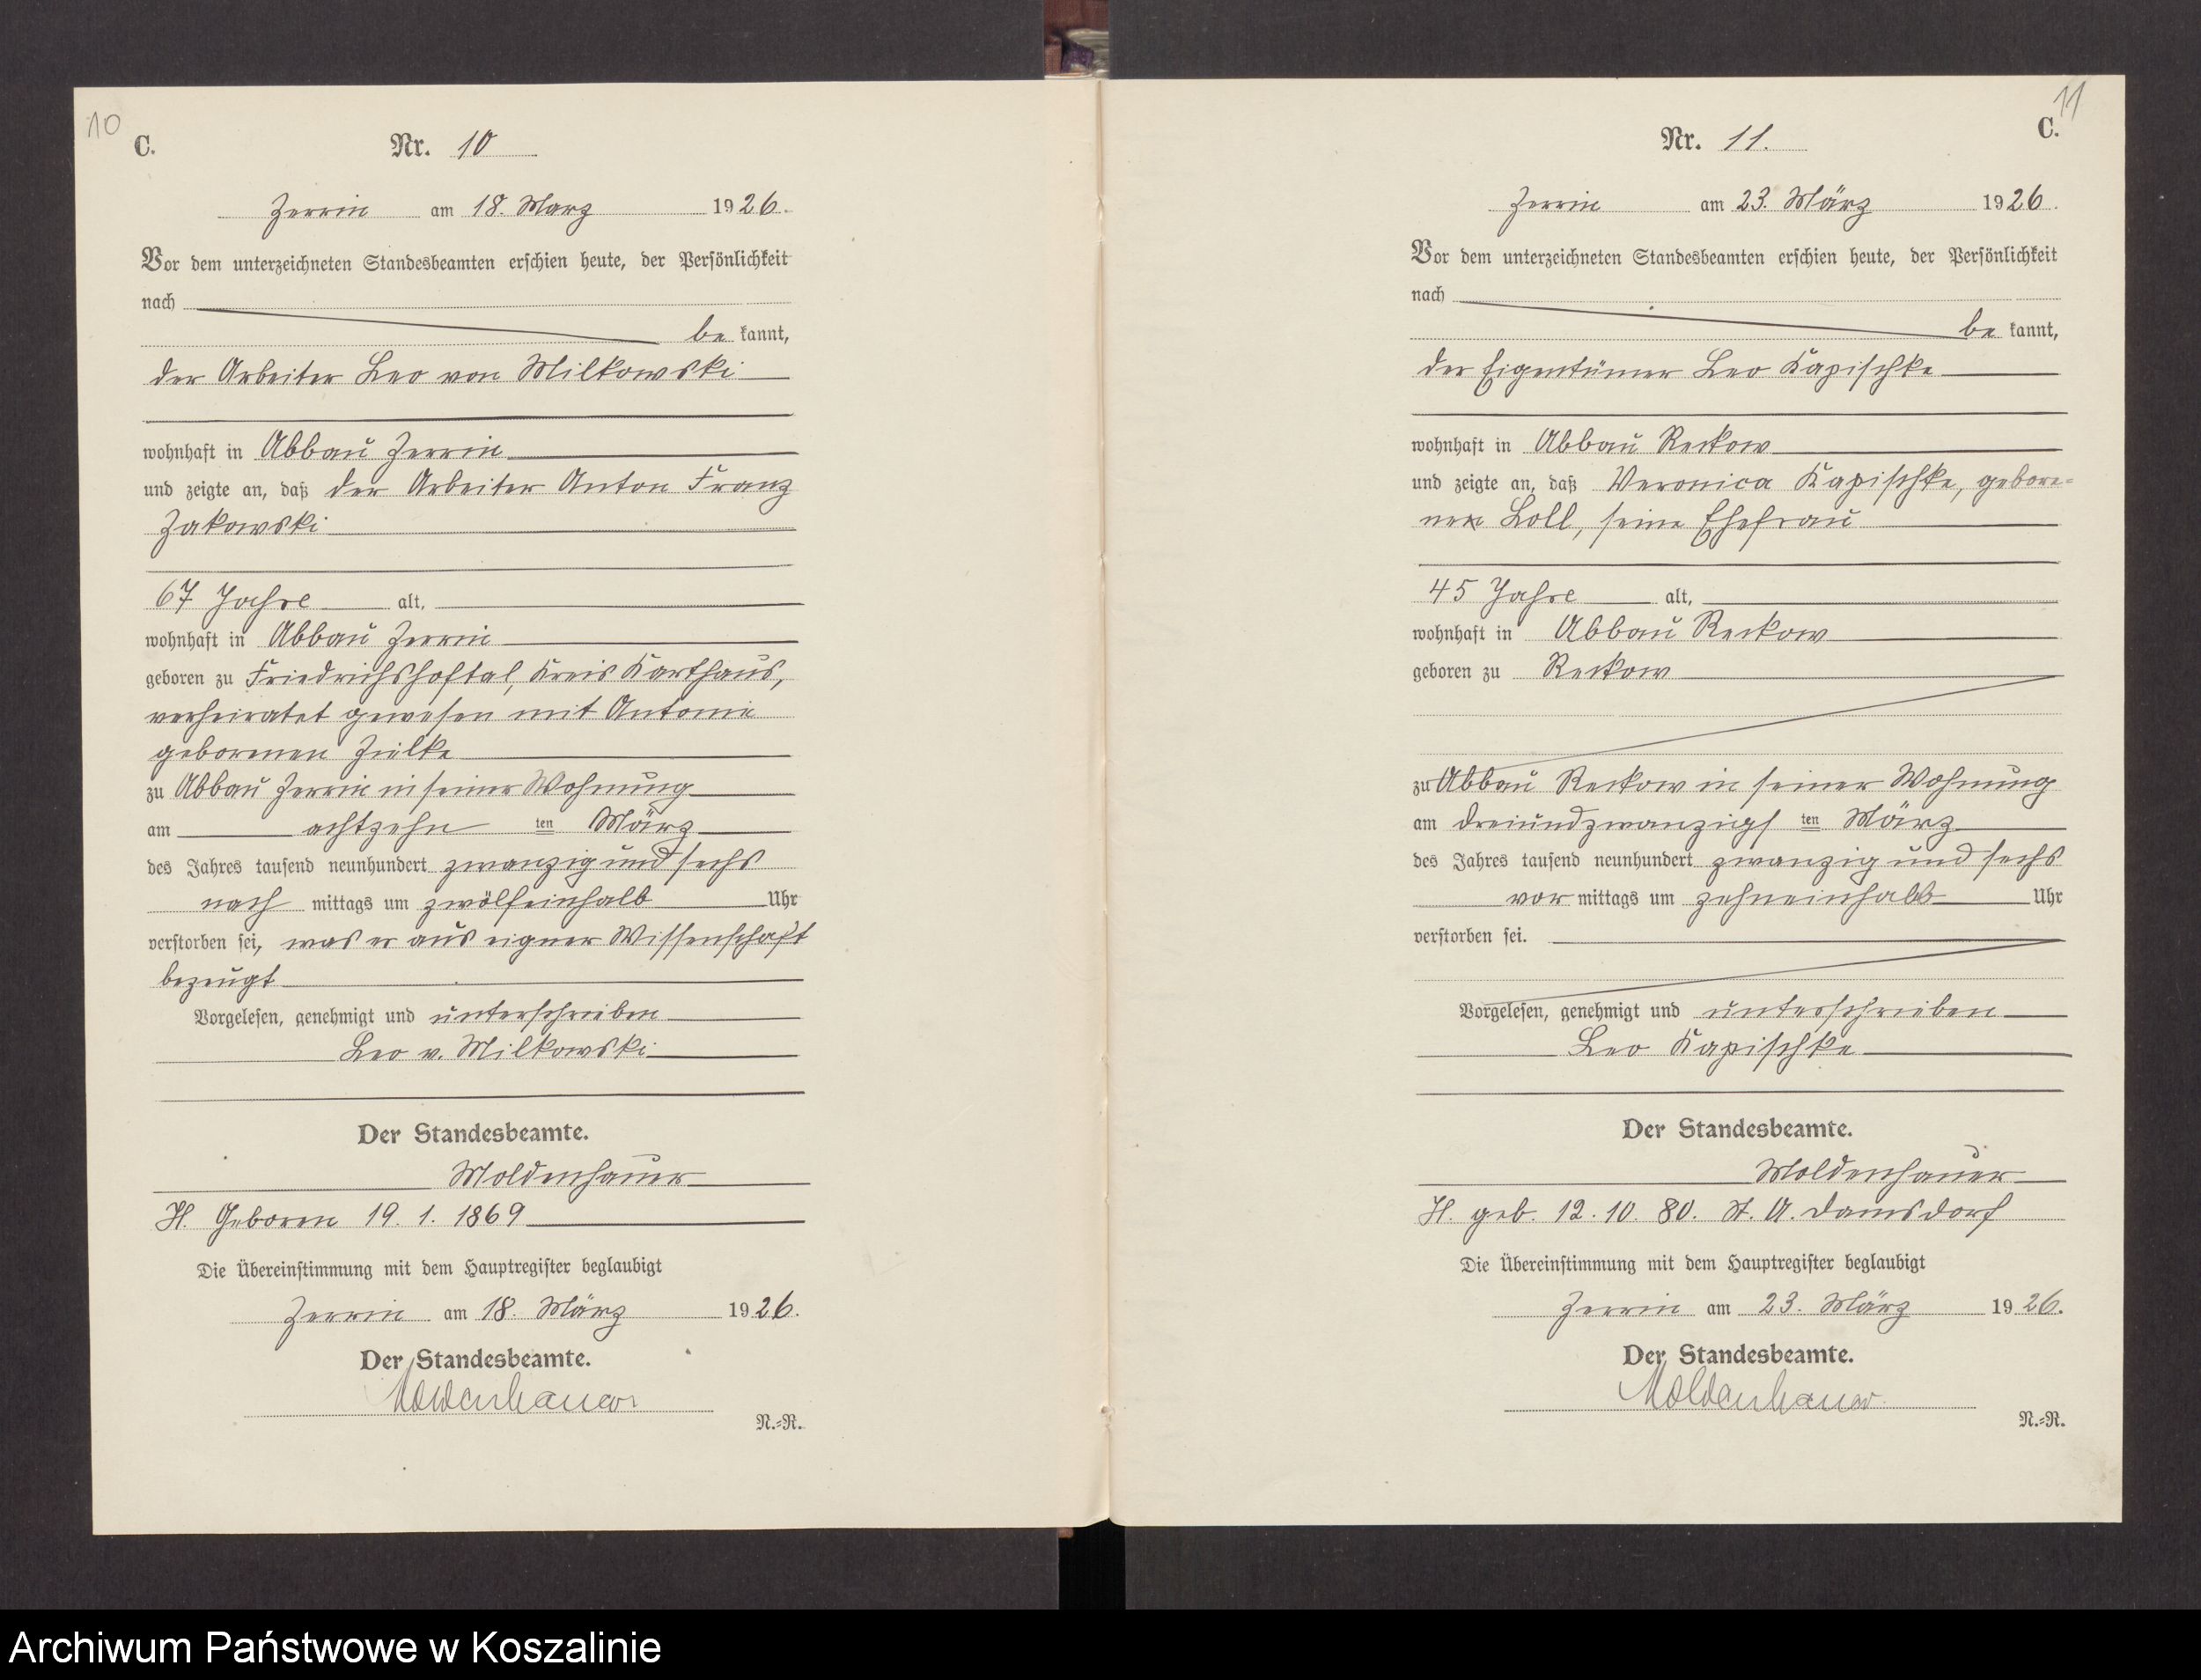 10
C.
Nr. 10
Zerrin am 18. Marz 1926.
Vor dem unterzeichneten Standesbeamten erschien heute, der Persönlichkeit
nach
be kannt,
der Arbeiter Leo von Milkowski
wohnhaft in Abbau Zerrin
und zeigte an, daß der Arbeiter Anton Franz
Zakowski
67 Jahre alt,
wohnhaft in Abbau Zerrin
geboren zu Friedrichshoftal, Kreis Karthaus,
verheiratet gewesen mit Antonie
geborenen Zielke
zu Abbau Zerrin in seiner Wohnung
am achtzehn ten März
des Jahres tausend neunhundert zwanzig und sechs
nach mittags um zwölfeinhalb Uhr
verstorben sei, was er aus eigner Wissenschaft
bezeugt
Vorgelesen, genehmigt und unterschrieben
Leo v. Milkowski
Der Standesbeamte.
Moldenhauer
H. Geboren 19. 1. 1869
Die Übereinstimmung mit dem Hauptregister beglaubigt
Zerrin am 18. März 1926.
Der Standesbeamte.
Moldenhauer
N.=R.
11
C.
Nr. 11.
Zerrin am 23. März 1926.
Vor dem unterzeichneten Standesbeamten erschien heute, der Persönlichkeit
nach
be kannt,
der Eigentümer Leo Kapischke
wohnhaft in Abbau Reckow
und zeigte an, daß Veronica Kapischke, gebore=
nen Loll, seine Ehefrau
45 Jahre alt,
wohnhaft in Abbau Reckow
geboren zu Reckow
zu Abbau Reckow in seiner Wohnung
am dreiundzwanzigs ten März
des Jahres tausend neunhundert zwanzig und sechs
vor mittags um zehneinhalb Uhr
verstorben sei.
Vorgelesen, genehmigt und unterschrieben
Leo Kapischke
Der Standesbeamte.
Moldenhauer
H. geb. 12. 10. 80. St. A. Damsdorf
Die Übereinstimmung mit dem Hauptregister beglaubigt
Zerrin am 23. März 1926.
Der Standesbeamte.
Moldenhauer
N.=R.
Archiwum Państwowe w Koszalinie